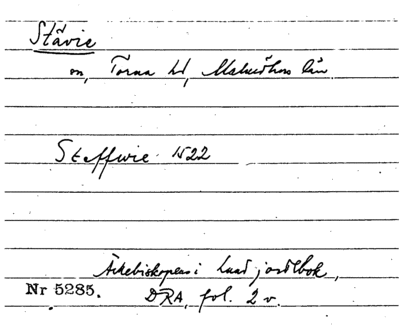 Stävie
sn, Torna hd, Malmöhus län
Steffwie 1522
Ärkebiskopens i Lund jordebok,
Nr 5285. DRA, fol. 2 v.